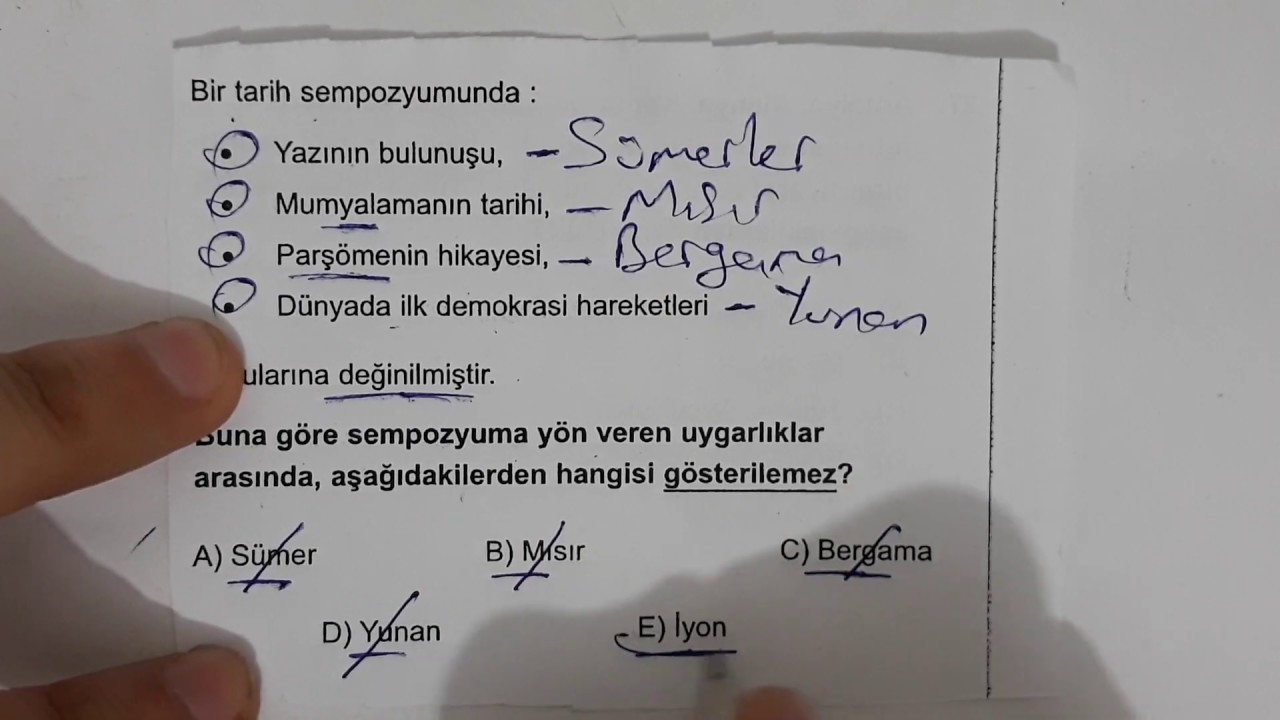 Bir tarih sempozyumunda :
Yazının bulunuşu, - Sümerler
Mumyalamanın tarihi, - Mısır
Parşömenin hikayesi, - Bergama
Dünyada ilk demokrasi hareketleri - Yunan
ularına değinilmiştir.
Buna göre sempozyuma yön veren uygarlıklar
arasında, aşağıdakilerden hangisi gösterilemez?
A) Sümer B) Mısır C) Bergama
D) Yunan E) İyon